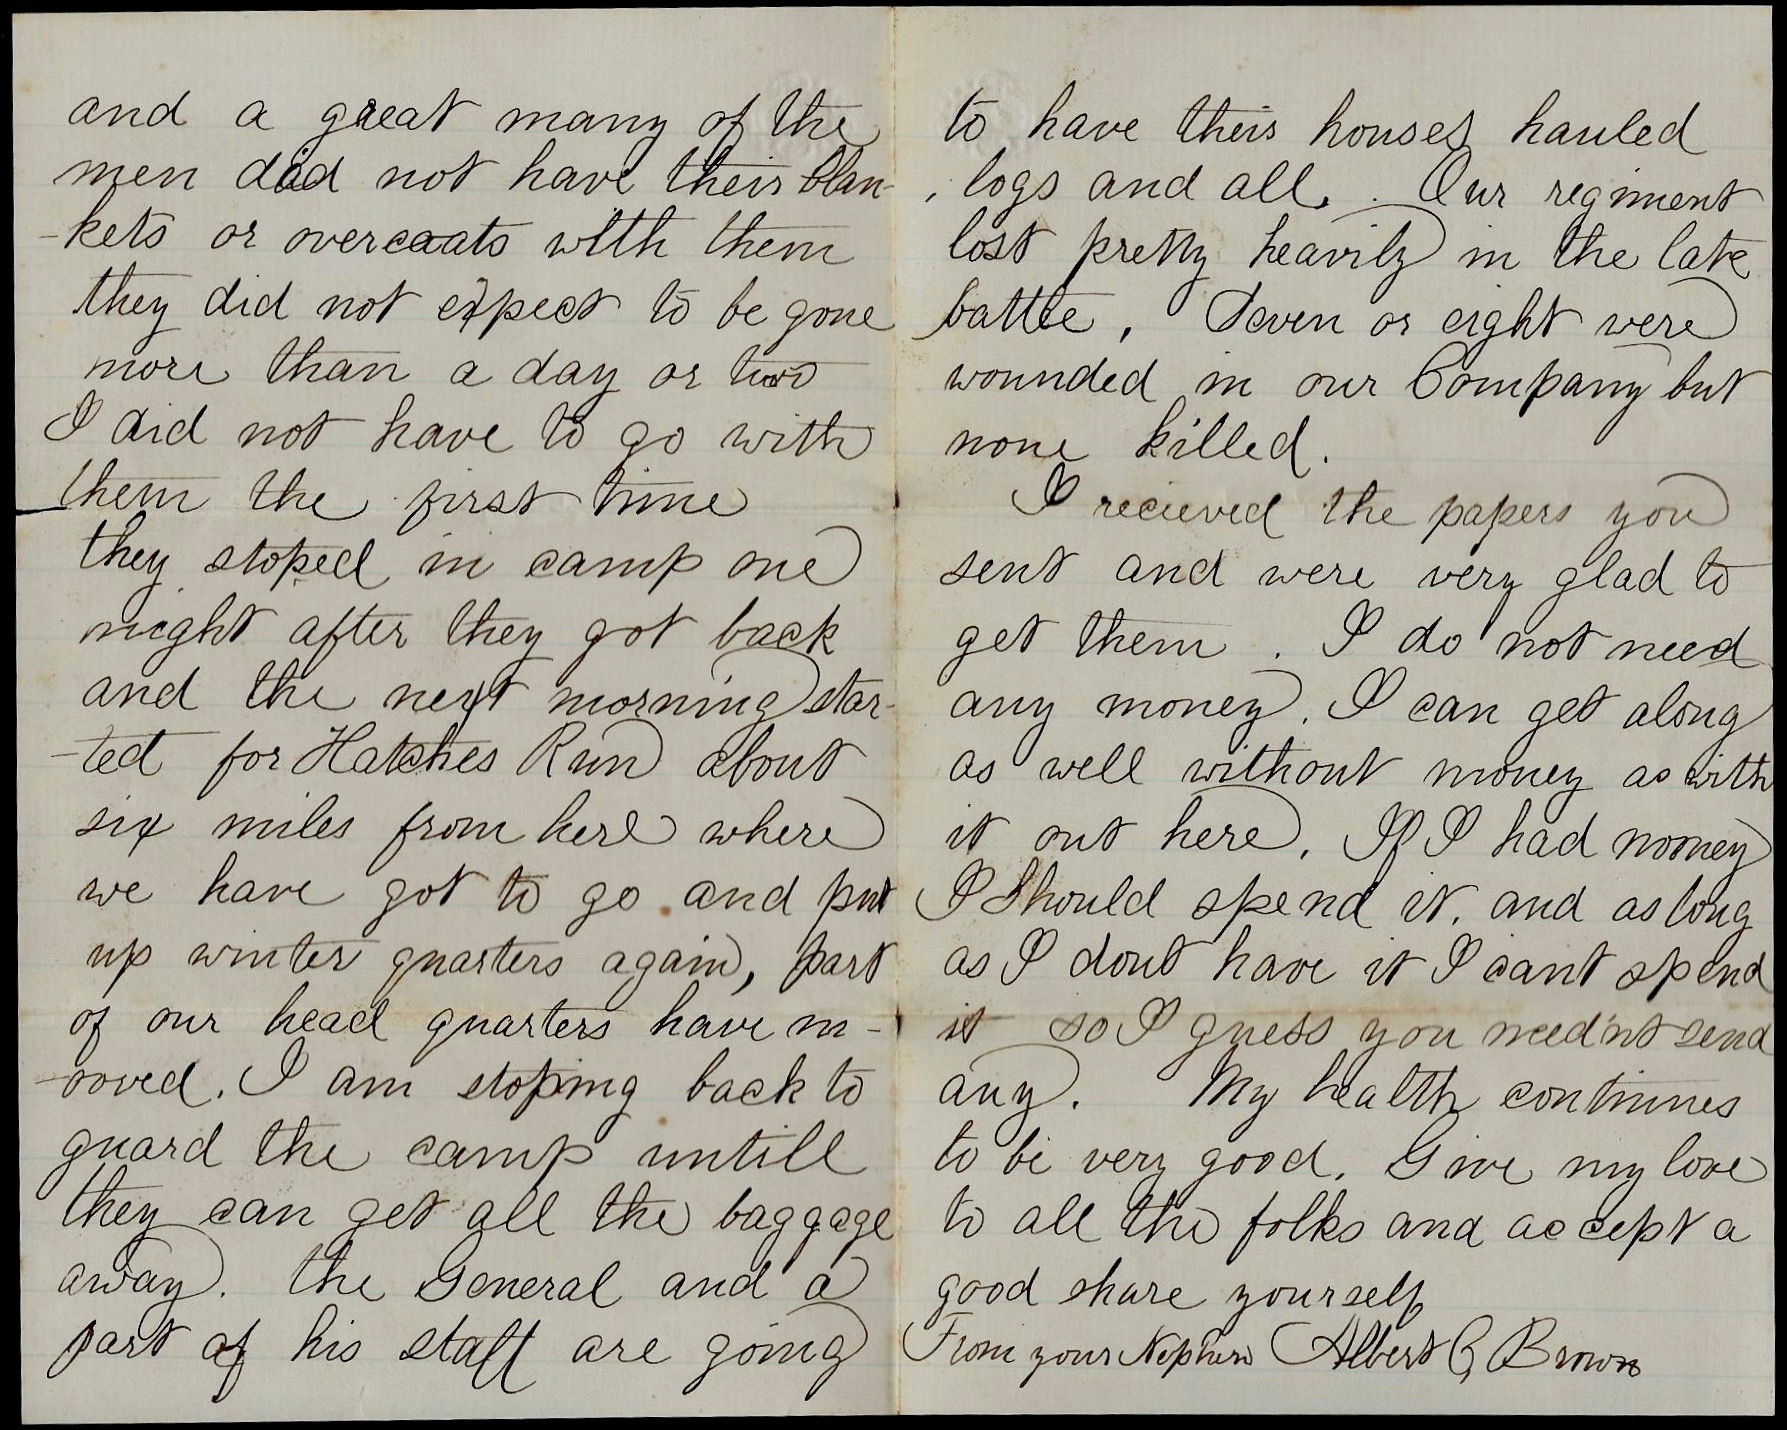 and a great many of the
men did not have their blan-
-kets or overcoats with them
they did not expect to be gone
more than a day or two
I did not have to go with
them the first time
they stoped in camp one
night after they got back
and the next morning star-
-ted for Hatches Run about
six miles from here where
we have got to go and put
up winter quarters again, part
of our head quarters have m-
-ooved. I am stoping back to
guard the camp untill
they can get all the baggage
away. the General and a
part of his staff are going
to have their houses hauled
, logs and all. Our regiment
lost pretty heavily in the late
battle, Seven or eight were
wounded in our Company but
none killed.
I recieved the papers you
sent and were very glad to
get them. I do not need
any money. I can get along
as well without money as with
it out here. If I had money
I Should spend it. and as long
as I dont have it I cant spend
it so I guess you need'nt send
any. My health continues
to be very good. Give my love
to all the folks and accept a
good share yourself
From your Nephew Albert C Brown